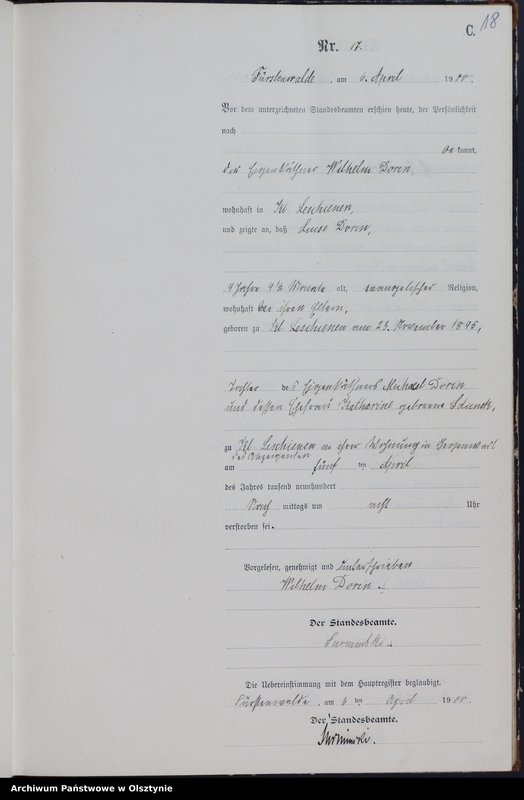 C. 18
Nr. 17.
Fürstenwalde, am 6. April 1900.
Vor dem unterzeichneten Standesbeamten erschien heute, der Persönlichkeit
nach
be kannt,
der Eigenkäthner Wilhelm Dorin,
wohnhaft in Kl Leschienen,
und zeigte an, daß Luise Dorin,
4 Jahre 4 1/2 Monate alt, evangelischer Religion,
wohnhaft bei ihren Eltern,
geboren zu Kl Leschienen am 23. November 1895,
Tochter des Eigenkäthners Michael Dorin
und dessen Ehefrau Katharine geborene
zu Kl. Leschienen in ihrer Wohnung in Gegenwart
des Anzeigenden
am fünf ten April
des Jahres tausend neunhundert
Nach mittags um acht Uhr
verstorben sei.
Vorgelesen, genehmigt und unterschrieben
Wilhelm Dorin.
Der Standesbeamte.
Die Uebereinstimmung mit dem Hauptregister beglaubigt.
Fürstenwalde, am 6 ten April 1900.
Der Standesbeamte.
Archiwum Państwowe w Olsztynie